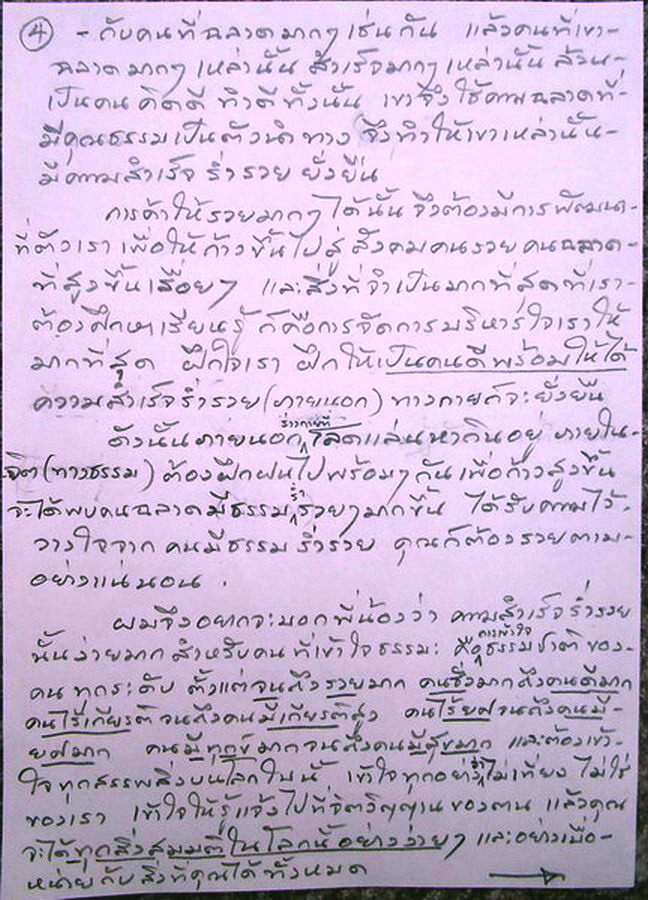 ④ - กับคนที่ฉลาดมากๆ เช่นกัน แล้วคนที่เขา-
ฉลาดมากๆ เหล่านั้น สำเร็จมากๆ เหล่านั้น ล้วน-
เป็นคน คิดดี ทำดีทั้งนั้น เขาจึงใช้ความฉลาดที่-
มีคุณธรรมเป็นตัวนำทาง จึงทำให้เขาเหล่านั้น-
มีความสำเร็จ ร่ำรวย ยั่งยืน
การค้าให้รวยมากๆ ได้นั้น จึงต้องมีการพัฒนา-
ที่ตัวเรา เพื่อให้ก้าวขึ้นไปสู่ สังคมคนรวย คนฉลาด-
ที่สูงขึ้นเรื่อยๆ และสิ่งที่จำเป็นมากที่สุดที่เรา-
ต้องศึกษาเรียนรู้ ก็คือการจัดการบริหารใจเราให้
มากที่สุด ฝึกใจเรา ฝึกให้เป็นคนดีพร้อมให้ได้
ความสำเร็จร่ำรวย (ภายนอก) ทางกายก็จะยั่งยืน
ดังนั้นภายนอก ร่างกายที่ โลดแล่นหากินอยู่ ภายใน-
จิต (ทางธรรม) ต้องฝึกฝนไปพร้อมๆ กัน เพื่อก้าวสูงขึ้น
จะได้พบคนฉลาดมีธรรม ร่ำรวยๆมากขึ้น ได้รับความไว้-
วางใจจาก คนมีธรรม ร่ำรวย คุณก็ต้องรวยตาม-
อย่างแน่นอน .
ผมจึงอยากจะบอกพี่น้องว่า ความสำเร็จร่ำรวย
นั้นง่ายมาก สำหรับคนที่เข้าใจธรรมะ คือ การเข้าใจ ธรรมชาติของ-
คนทุกระดับ ตั้งแต่จนถึงรวยมาก คนชั่วมากถึงคนดีมาก
คนไร้เกียรติจนถึงคนมีเกียรติสูง คนไร้ยศจนถึงคนมี-
ยศมาก คนมีทุกข์มากจนถึงคนมีสุขมาก และต้องเข้า-
ใจทุกสรรพสิ่งบนโลกใบนี้ เข้าใจทุกอย่างว่าไม่เที่ยง ไม่ใช่
ของเรา เข้าใจให้รู้แจ้งไปที่จิตวิญญาณของตน แล้วคุณ
จะได้ทุกสิ่งสมมติในโลกนี้อย่างง่ายๆ และอย่างเบื่อ-
หน่ายกับสิ่งที่คุณได้ทั้งหมด